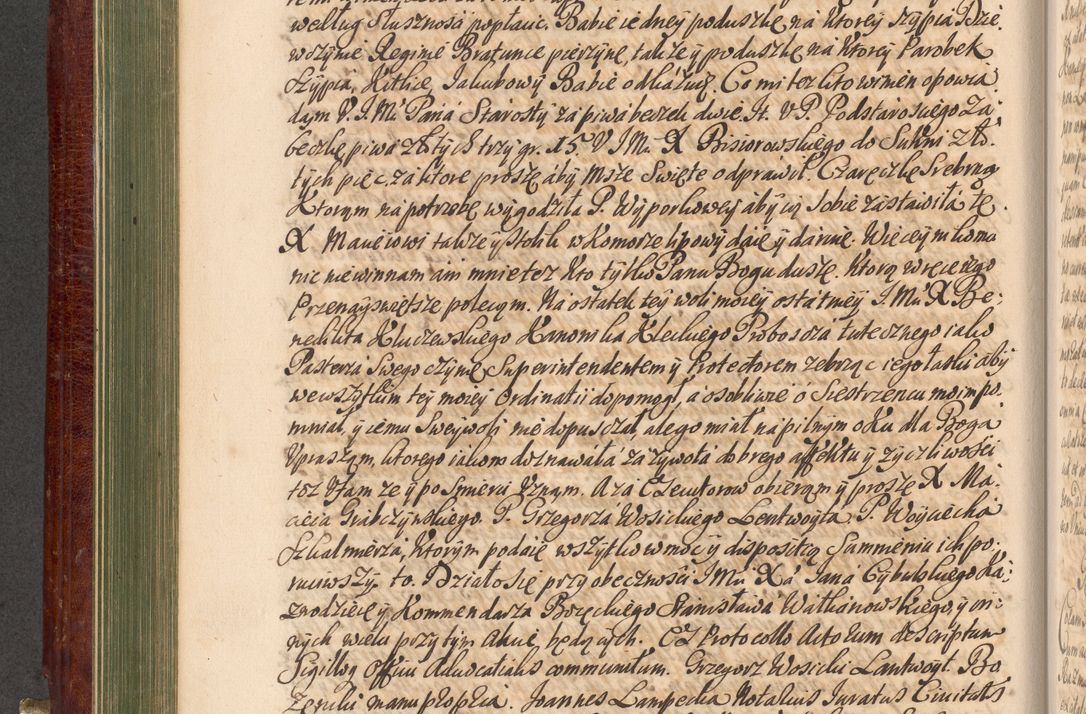 według słusznosci popłacic. Babie iedney poduszkę, ná ktorey szypia Dzie
wczynie Reginie Bratance pierzynę, także y poduszkę ná ktorey Parobek
szypia, Kitlice, Jakubowy Babie odkazuię. Co mi tez kto winien opowia
dam V. J. Mci Páná Starosty zá piwá beczek dwie. It. V P. Podstarosciego Zá
beczkę piwá złotych trzy gr. 15. V J Mci X Bisiorowskiego do Sukni Zło
tych pięc, zá ktore proszę áby Msze Swięte odprawił. Czareczkę Srebrną
Ktorąm ná potrzebę wygodziła P. Wyporkowey áby ią Sobie zástawiła tę
X Maciejowi także y stolik w komorze lipowy daię y daruię. Więcey nikomu
nic niewinnam áni mnie tez kto tylko Panu Bogu duszę. Ktorą w ręce iego
Przenayswiętsze polecąm. Ná ostatek tey woli moiey ostátniey J Mci X Be-
nedikta Kluczewskiego Kanonika Kieckiego Proboscza tutecznego iako
Pasterza Swego czynię Superintendentem y Protectorem zebrząc iego łaski áby
we wszytkim tey moiey Ordinatii dopomogł, á osobliwie o Siestrzencu moim pa
miętał, y iemu Swey woli nie dopusczał, ále go miał ná pilnym oku dla Boga
Vpraszam, ktorego iakom doznawała zá zywotá dobrego affektu y zyczliwosci
toz Vfam ze y po Smierci Vznam. A zá Exekutorow obieram y proszę X Ma-
cieia Grabczynskiego. P. Grzegorza Wosickiego Lentwoyta. P. Woyciecha
Szkalmierza, Ktorym podaię wszytko w moc y dispositią Summieniu ich po-
ruciwszy to. Działo się przy obecznosci J Mci Xá Janá Cybulskiego Ka-
znodzieie y Kommendarza Bozęckiego Stanisława Watkanowskiego, y in-
nych wielu przy tym akcie będących. Ex Protocollo Actorum descriptum
Sigillo Officii Advocatialis communitum. Grzegorz Wosicki Lantwoyt. Bo
Zęcki manu propria. Joannes Lampecka Notarius Juratus Civitatis